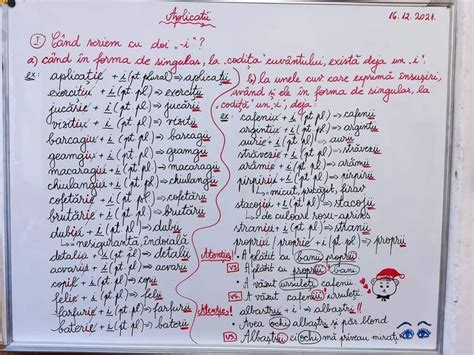 Aplicații
16.12.2021.
① Când scriem cu doi „-i"?
a) când în forma de singular, la „codița" cuvântului, există deja un „i":
ex: aplicație + i (pt plural) => aplicații
exercițiu + i (pt pl) => exerciții
jucărie + i (pt pl) => jucării
vizitiu + i (pt pl) => vizitii
barcagiu + i (pt pl) => barcagii
geamgiu + i (pt pl) => geamgii
macaragiu + i (pt pl) => macaragii
ciulangiu + i (pt pl) => ciulangii
cofetărie + i (pt pl) => cofetării
brutărie + i (pt pl) => brutării
dubiu + i (pt pl) => dubii
↳ nesiguranță, îndoială
detaliu + i (pt pl) => detalii
acvariu + i (pt pl) => acvarii
copil + i (pt pl) => copii
felie + i (pt pl) => felii
farfurie + i (pt pl) => farfurii
baterie + i (pt pl) => baterii
b) la unele cuv care exprimă însușiri,
având și ele în forma de singular, la
„codiță" un „i", deja:
ex: cafeniu + i (pt pl) => cafenii
argintiu + i (pt pl) => argintii
auriu + i (pt pl) => aurii
străveziu + i (pt pl) => străvezii
arămiu + i (pt pl) => arămii
pirpiriu + i (pt pl) => pirpirii
↳ micuț, prăpădit, firav
stacojiu + i (pt pl) => stacojii
↳ de culoare roșu-aprins
straniu + i (pt pl) => stranii
propriu / proprie + i (pt pl) => proprii
Atenție!
• A plătit cu banii proprii
VS
A plătit cu proprii bani
• A văzut ursuleți cafenii
VS
A văzut cafenii ursuleți.
Atenție!
albastru + i => albaștri
• Avea ochi albaștri și păr blond
VS
Albaștrii ei ochi mă priveau mirați